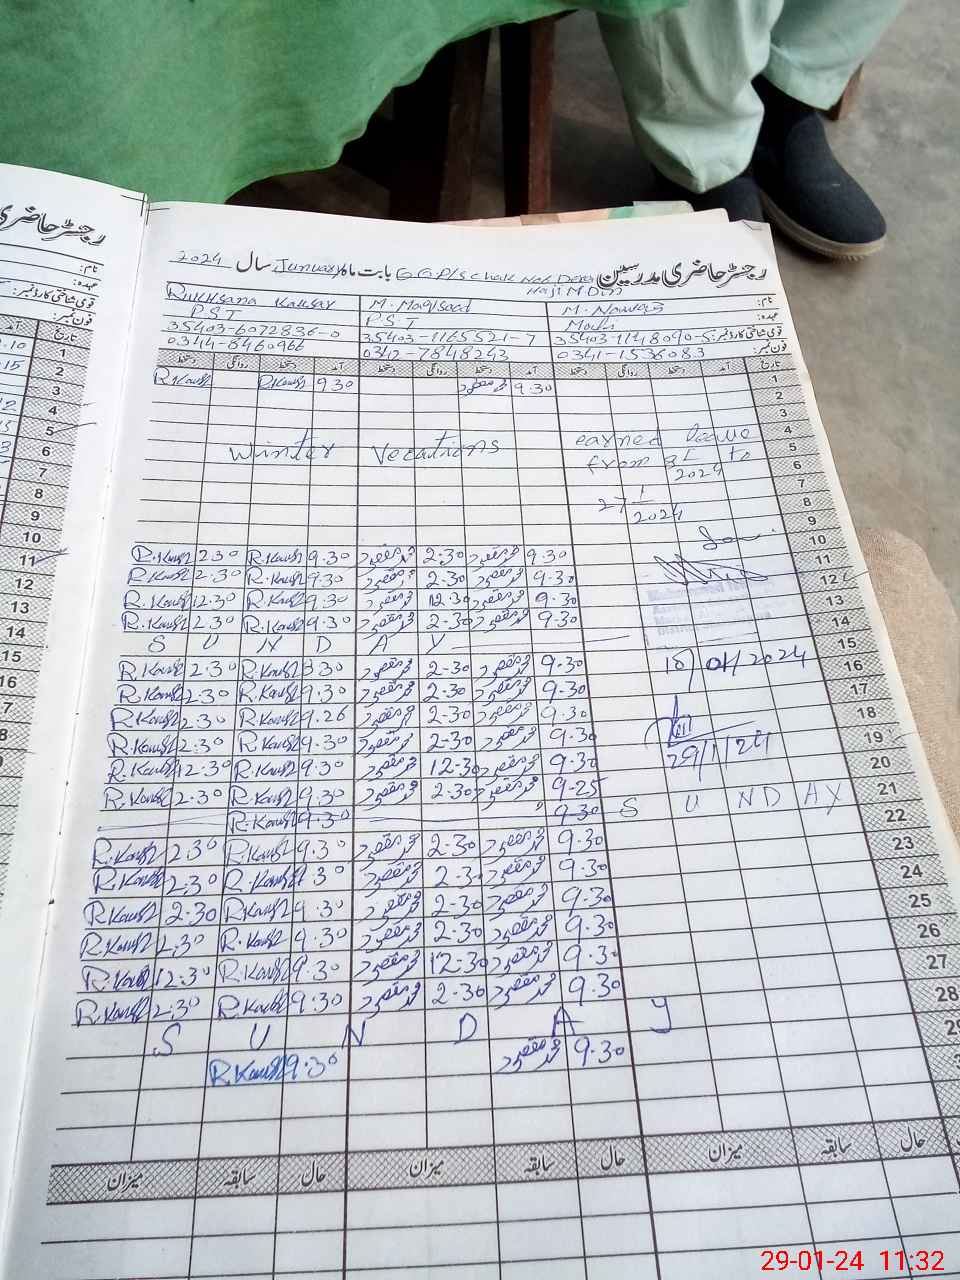 رجسٹر حاضری مدرسین G.G.P/S Chak بابت ماہ January سال 2024
Haji M.Din
نام: M. Nawaz M. Maqsood Rukhsana Kausar
عہدہ: PST PST
قومی شناختی کارڈ نمبر: 35403-1148090-5 35403-1165521-7 35403-6072836-0
فون نمبر: 0341-1536083 0342-7848243 0344-8460966
تاریخ آمد دستخط روانگی دستخط آمد دستخط روانگی دستخط آمد دستخط روانگی دستخط
1 9.30 محمد مقصود 9.30 R.Kausar R.Kausar
2
3
4
5 Winter Vecations earned leave
6 from to
2024
7
8 27 1
2024
9
10 9.30 محمد مقصود 2.30 محمد مقصود 9.30 R.Kausar 2.30 R.Kausar
11 9.30 محمد مقصود 2.30 محمد مقصود 9.30 R.Kausar 2.30 R.Kausar
12 9.30 محمد مقصود 12.30 محمد مقصود 9.30 R.Kausar 12.30 R.Kausar
13 9.30 محمد مقصود 2.30 محمد مقصود 9.30 R.Kausar 2.30 R.Kausar
14 S U N D A Y
15 9.30 محمد مقصود 2.30 محمد مقصود R.Kausar 2.30 R.Kausar
/01/2024
16 9.30 محمد مقصود 2.30 محمد مقصود 9.30 R.Kausar 2.30 R.Kausar
17 9.30 محمد مقصود 2.30 محمد مقصود 9.26 R.Kausar 2.30 R.Kausar
18 9.30 محمد مقصود 2.30 محمد مقصود 9.30 R.Kausar 2.30 R.Kausar
29/1/24
19 9.30 محمد مقصود 12.30 محمد مقصود 9.30 R.Kausar 12.30 R.Kausar
20 9.25 محمد مقصود 2.30 محمد مقصود 9.30 R.Kausar 2.30 R.Kausar
21 S U N D A Y 9.30 9.30 R.Kausar
22 9.30 محمد مقصود 2.30 محمد مقصود 9.30 R.Kausar 2.30 R.Kausar
23 9.30 محمد مقصود 2.30 محمد مقصود 9.30 R.Kausar 2.30 R.Kausar
24 9.30 محمد مقصود 2.30 محمد مقصود 9.30 R.Kausar 2.30 R.Kausar
25 9.30 محمد مقصود 2.30 محمد مقصود 9.30 R.Kausar 2.30 R.Kausar
26 9.30 محمد مقصود 12.30 محمد مقصود 9.30 R.Kausar 12.30 R.Kausar
27 9.30 محمد مقصود 2.30 محمد مقصود 9.30 R.Kausar 2.30 R.Kausar
28 S U N D A Y
9.30 محمد مقصود 9.30 R.Kausar
حال سابقہ میزان حال سابقہ میزان حال سابقہ میزان
رجسٹر حاضری
نام:
عہدہ:
قومی شناختی کارڈ نمبر:
فون نمبر:
تاریخ آمد
1
2
3
4
5
6
7
8
9
10
11
12
13
14
15
16
29-01-24 11:32